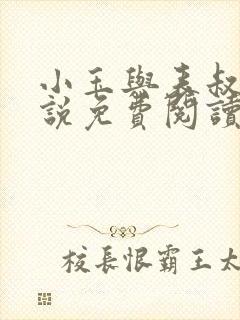 小玉與表叔
說免費閱讀
校長恨霸王太